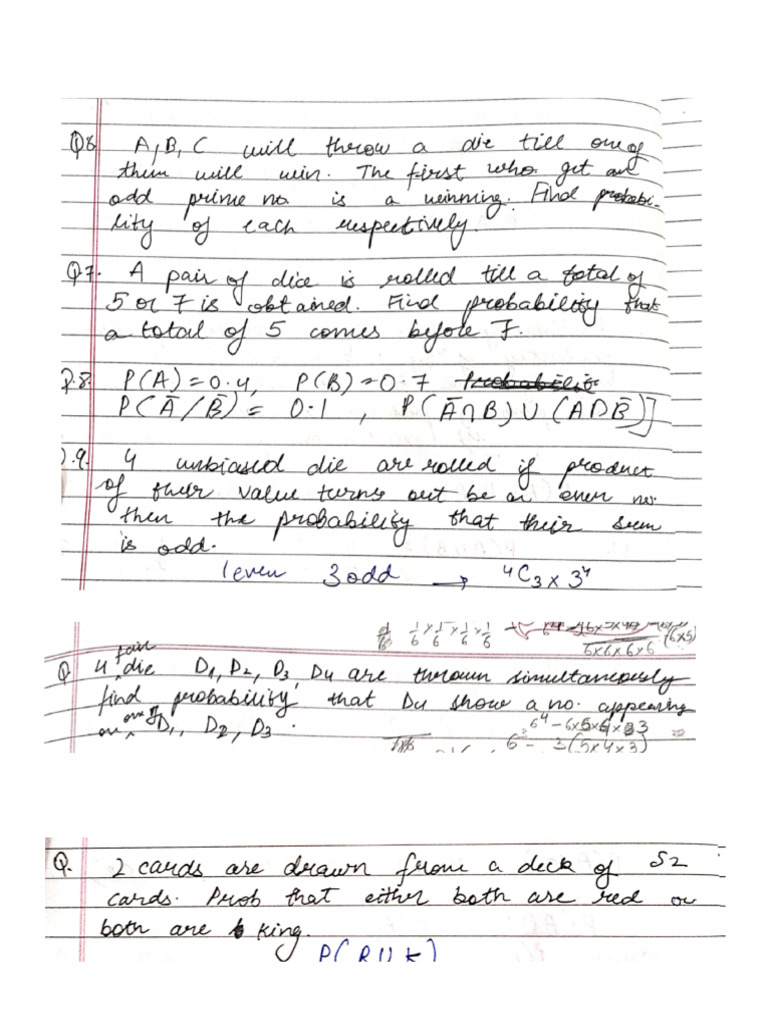 Q6 A, B, C will throw a die till one of
them will win. The first who get an
odd prime no is a winning. Find probabi-
lity of each respectively.
Q7. A pair of dice is rolled till a total of
5 or 7 is obtained. Find probability that
a total of 5 comes before 7.
Q.8. P(A)=0.4, P(B)=0.7
P(Ā/B̄) = 0.1 , P(Ā∩B)∪(A∩B̄)]
).9. 4 unbiased die are rolled if product
of their value turns out be an even no.
then the probability that their sum
is odd.
1 even 3 odd → ⁴C₃ x 3⁴
1/6 x 1/6 x 1/6 x 1/6
6x6x6x6 (6x5)
Q 4 fair die D1, D2, D3, D4 are thrown simultaneously
find probability that D4 show a no. appearing
on one of D1, D2, D3.
6⁴ - 6x5x4x3 =
6³ - 3(5x4x3)
Q. 2 cards are drawn from a deck of 52
cards. Prob that either both are red or
both are king.
P(R∪K)